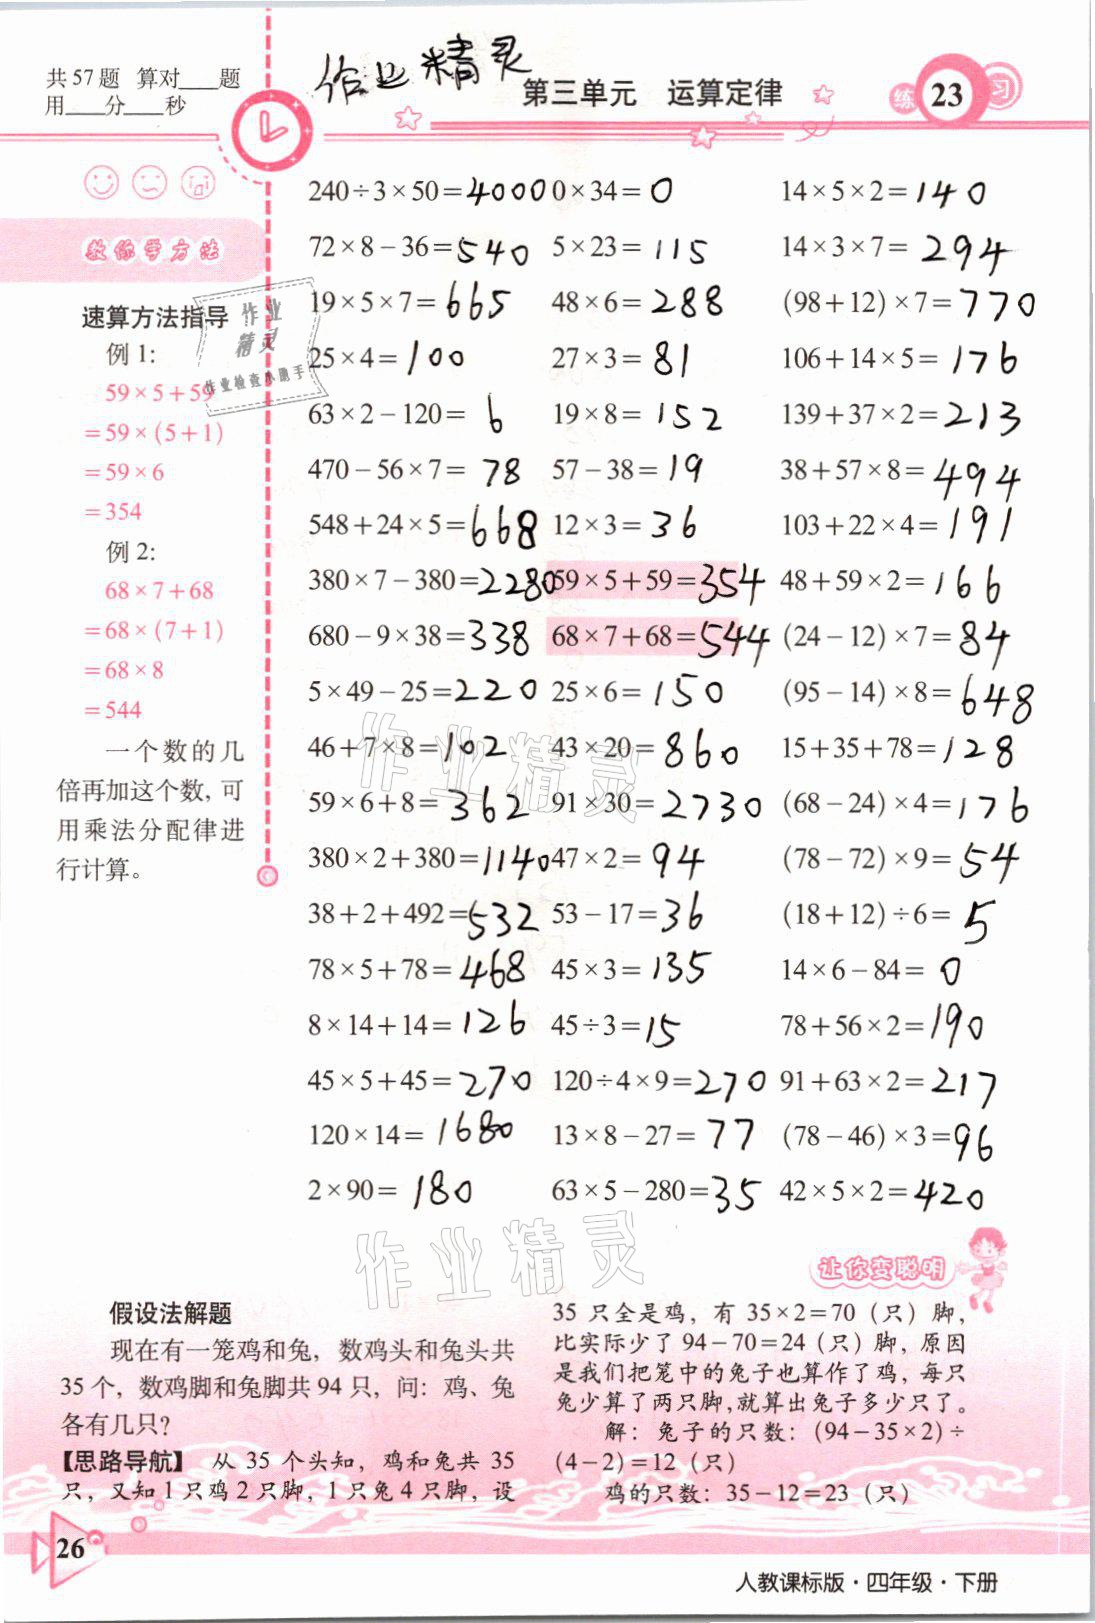 共57题 算对___题
用___分___秒
作业精灵
第三单元 运算定律
练 23 习
教你学方法
速算方法指导
例1:
59×5+59
=59×(5+1)
=59×6
=354
例2:
68×7+68
=68×(7+1)
=68×8
=544
一个数的几
倍再加这个数,可
用乘法分配律进
行计算。
作业
精灵
作业检查小助手
240÷3×50=4000
72×8-36=540
19×5×7=665
25×4=100
63×2-120=6
470-56×7=78
548+24×5=668
380×7-380=2280
680-9×38=338
5×49-25=220
46+7×8=102
59×6+8=362
380×2+380=1140
38+2+492=532
78×5+78=468
8×14+14=126
45×5+45=270
120×14=1680
2×90=180
0×34=0
5×23=115
48×6=288
27×3=81
19×8=152
57-38=19
12×3=36
59×5+59=354
68×7+68=544
25×6=150
43×20=860
91×30=2730
47×2=94
53-17=36
45×3=135
45÷3=15
120÷4×9=270
13×8-27=77
63×5-280=35
14×5×2=140
14×3×7=294
(98+12)×7=770
106+14×5=176
139+37×2=213
38+57×8=494
103+22×4=191
48+59×2=166
(24-12)×7=84
(95-14)×8=648
15+35+78=128
(68-24)×4=176
(78-72)×9=54
(18+12)÷6=5
14×6-84=0
78+56×2=190
91+63×2=217
(78-46)×3=96
42×5×2=420
作业精灵
作业精灵
让你变聪明
假设法解题
现在有一笼鸡和兔,数鸡头和兔头共
35个,数鸡脚和兔脚共94只,问:鸡、兔
各有几只?
【思路导航】 从35个头知,鸡和兔共35
只,又知1只鸡2只脚,1只兔4只脚,设
35只全是鸡,有35×2=70(只)脚,
比实际少了94-70=24(只)脚,原因
是我们把笼中的兔子也算作了鸡,每只
兔少算了两只脚,就算出兔子多少只了。
解:兔子的只数:(94-35×2)÷
(4-2)=12(只)
鸡的只数:35-12=23(只)
26
人教课标版·四年级·下册